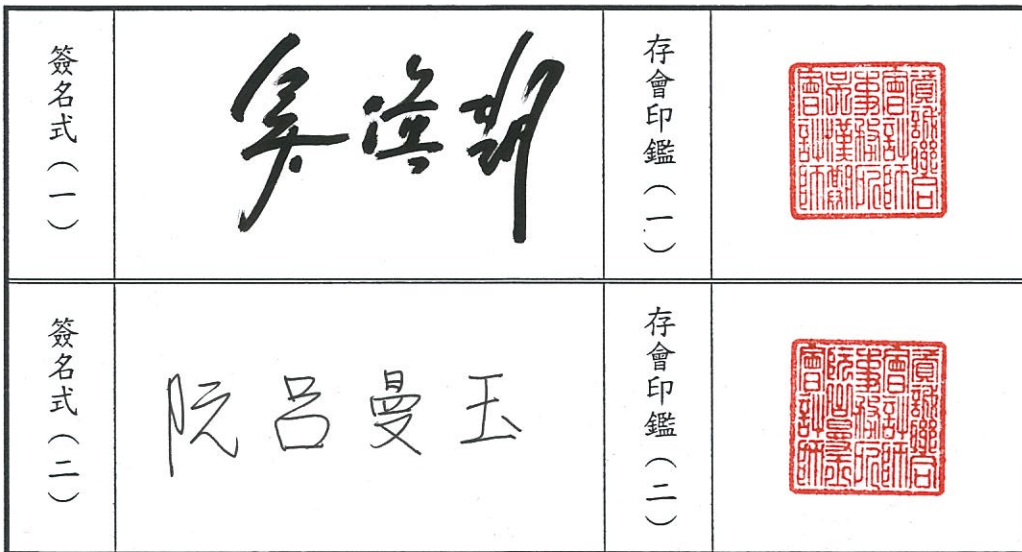 簽名式（一）
吳漢期
存會印鑑（一）
資誠聯合
會計師
事務所
吳漢期
會計師
簽名式（二）
阮呂曼玉
存會印鑑（二）
資誠聯合
會計師
事務所
阮呂曼玉
會計師